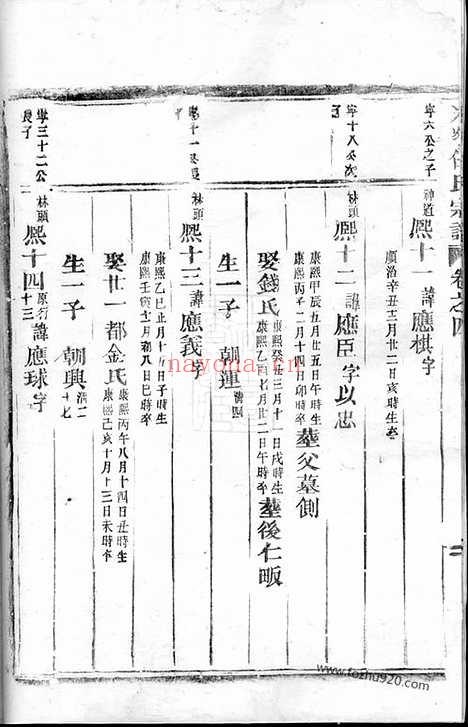 氏宗譜 卷之四
寧六公之子 神道 熈十一 諱應棋字
順治辛丑三月廿二日亥時生卒
寧十八公次 林頭 熈十二 諱應臣 字以忠
康熙甲辰五月廿五日午時生
康熙丙子二月十四日卯時卒 葬父墓側
娶錢氏 康熙癸 三月十一日戌時生
康熙乙 七月廿二日午時卒 葬後仁畈
生一子 朝連
十一 林頭 熈十三 諱應義
康熙乙巳正月十 日子時生
康熙壬寅 月初八日巳時卒
娶廿一都金氏 康熙丙午八月十四日丑時生
康熙己亥十月十三日未時卒
生一子 朝興
寧三十二公長子 林頭 熈十四 原行十三 諱應球字
nayona.cn
www.fozhu920.com